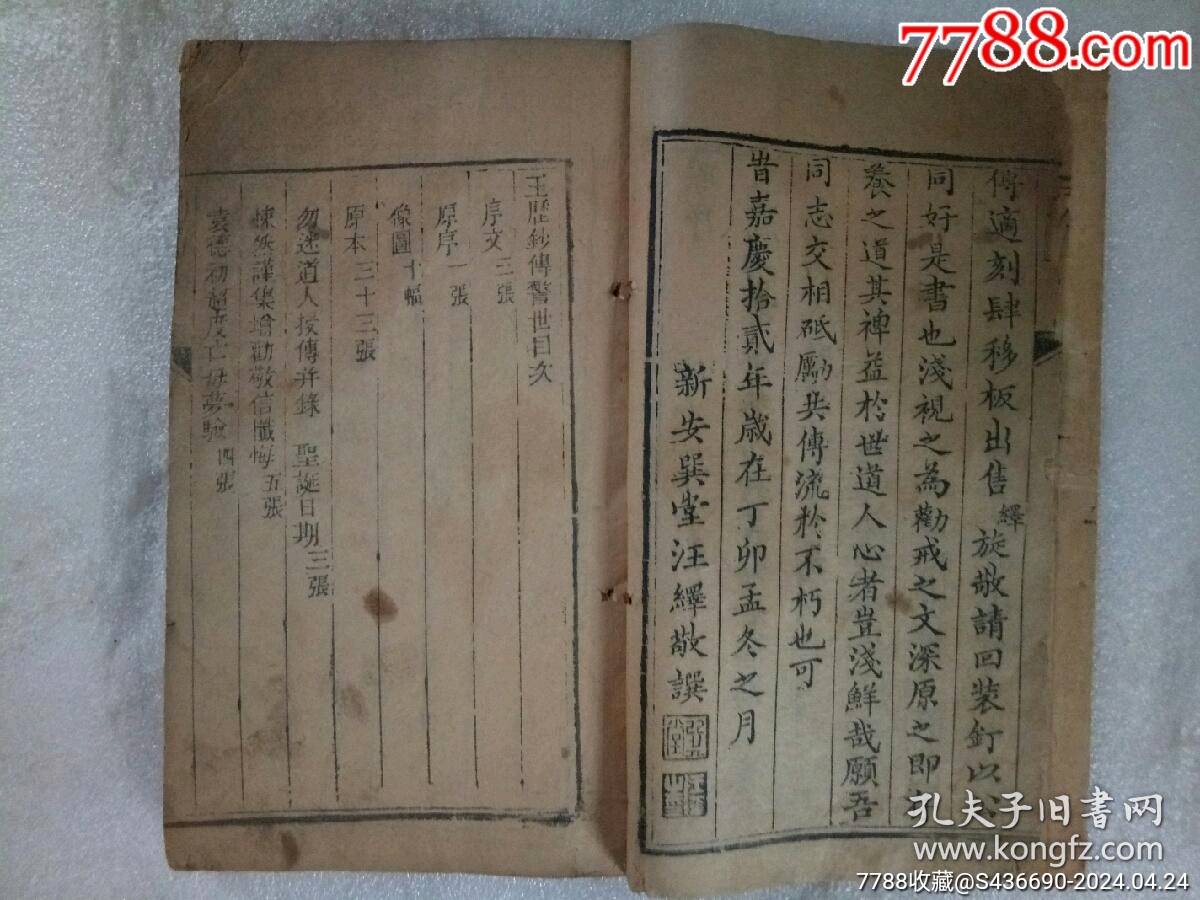 7788.com
傳適刻肆移板出售繹旋敬請回裝釘以公
同好是書也淺視之為勸戒之文深原之即
養之道其裨益於世道人心者豈淺鮮哉願吾
同志交相砥勵共傳流於不朽也可
旹嘉慶拾貳年歲在丁卯孟冬之月
新安巽堂汪繹敬譔
玉歷鈔傳警世目次
序文三張
原序一張
像圖十幅
原本三十三張
勿迷道人授傳并錄 聖誕日期三張
謹集增勸敬信懺悔五張
超度亡母夢驗四張
孔夫子旧书网
www.kongfz.com
7788收藏@S436690-2024.04.24